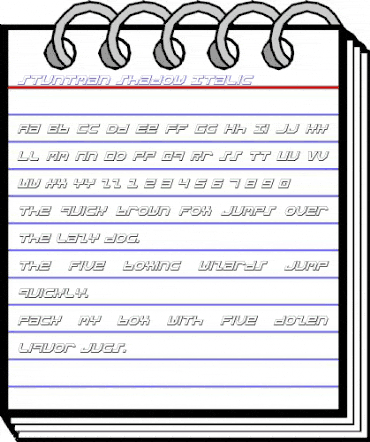 Stuntman Shadow Italic
Aa Bb Cc Dd Ee Ff Gg Hh Ii Jj Kk
Ll Mm Nn Oo Pp Qq Rr Ss Tt Uu Vv
Ww Xx Yy Zz 1 2 3 4 5 6 7 8 9 0
The quick brown fox jumps over
the lazy dog.
The five boxing wizards jump
quickly.
Pack my box with five dozen
liquor jugs.